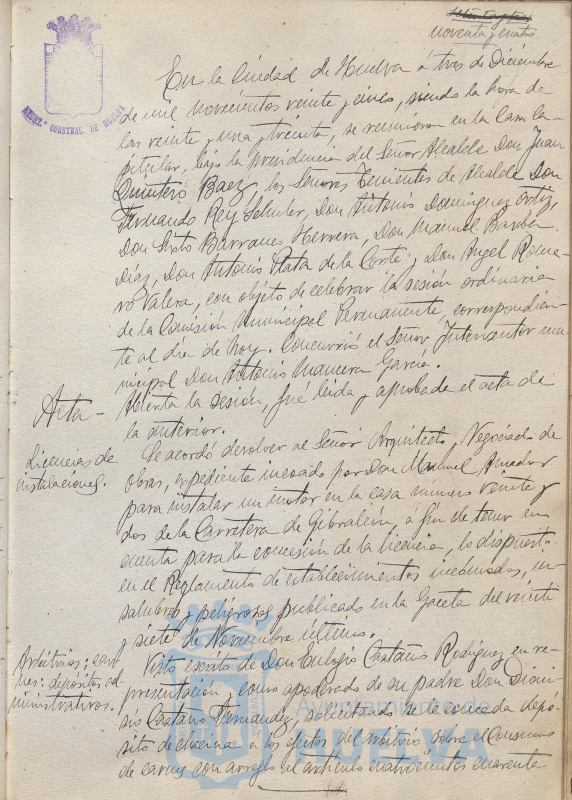 noventa y cuatro
AYUNT.º CONSTNAL. DE HUELVA
En la Ciudad de Huelva á tres de Diciembre
de mil novecientos veinte y cinco, siendo la hora de
las veinte y una y treinta, se reunieron en la Casa Ca-
pitular, bajo la presidencia del Señor Alcalde Don Juan
Quintero Baez, los Señores Tenientes de Alcalde Don
Fernando Rey Don Antonio Dominguez Ortiz,
Don Sixto Barranco Herrera, Don Manuel Barba
Diaz, Don Antonio Plata de la Corte y Don Angel Rome-
ro Valera, con objeto de celebrar la sesión ordinaria
de la Comisión Municipal Permanente, correspondien-
te al dia de hoy. Concurrió el Señor Interventor mu-
nicipal Don Antonio García.
Acta-
Abierta la sesión, fué leida y aprobada el acta de
la anterior.
Licencias de
instalaciones.
Se acordó devolver al Señor Arquitecto y Negociado de
obras, expediente incoado por Don Manuel Amador
para instalar un motor en la casa número veinte y
dos de la Carretera de Gibraleón, á fin de tener en
cuenta para la concesión de la licencia, lo dispuesto
en el Reglamento de establecimientos incómodos, in-
salubres y peligrosos publicado en la Gaceta del veinte
y siete de Noviembre último.
Arbitrios; car-
nes: depósitos ad-
ministrativos.
Visto escrito de Don Eulogio Castaño Rodriguez en re-
presentación, como apoderado de su padre Don Dioni-
sio Castaño Fernandez, solicitando se le conceda depó-
sito de á los efectos del arbitrio sobre el Consumo
de carnes con arreglo al artículo cuatrocientos cuarenta
Ayuntamiento de
HUELVA